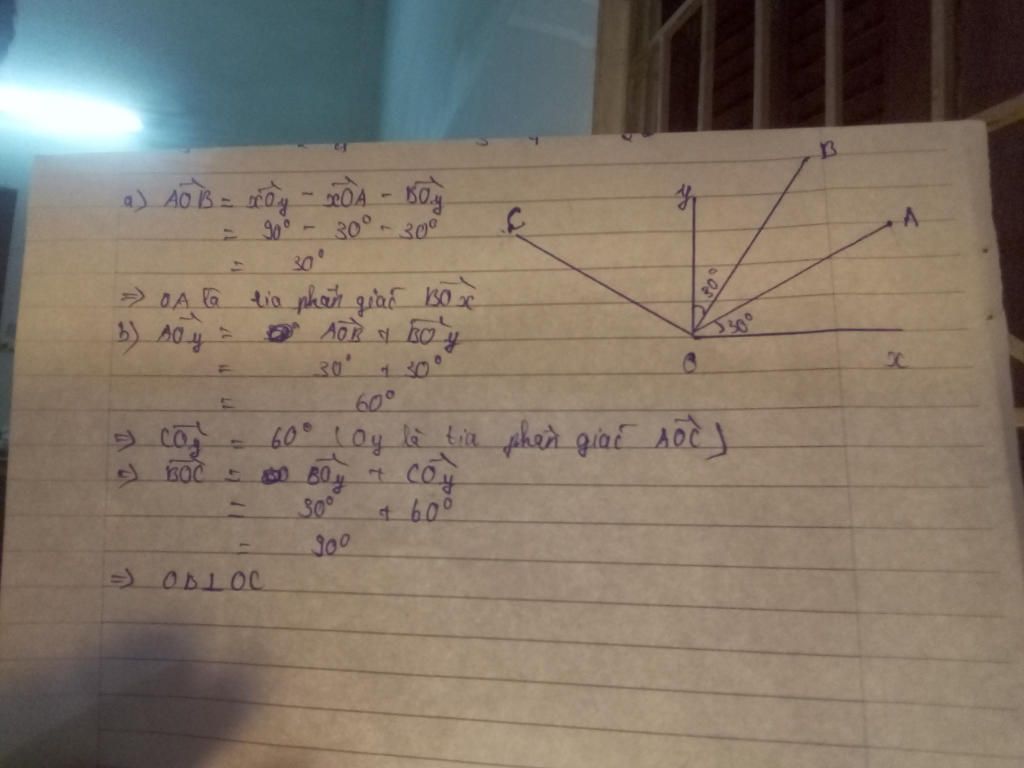 a) AOB = xOy - xOA - BOy
= 90° - 30° - 30°
= 30°
=> OA là tia phân giác BOx
b) AOy = AOB + BOy
= 30° + 30°
= 60°
=> COy = 60° (Oy là tia phân giác AOC)
c) BOC = BOy + COy
= 30° + 60°
= 90°
=> OB⊥OC
B
y
A
C
30°
30°
O
x